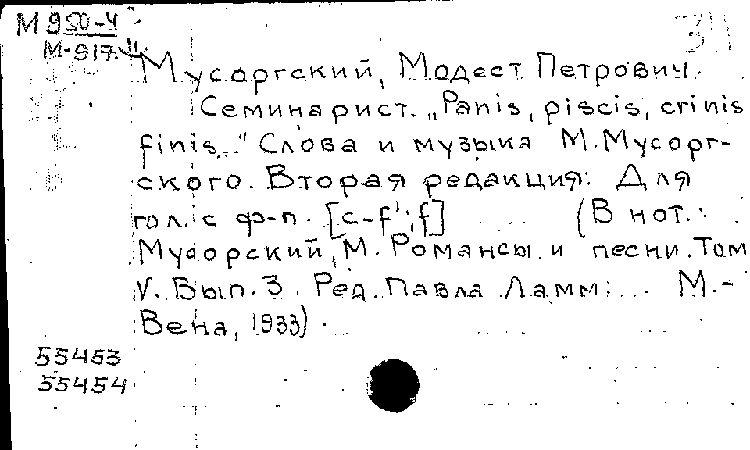 М 950-4
М-917
Мусоргский, Модест Петрович.
Семинарист. "Panis, piscis, crinis
finis..." Слова и музыка М. Мусорг-
ского. Вторая редакция. Для
гол. с ф-п. [c-f'; f] (В нот.:
Мусорский, М. Романсы и песни. Том
V. Вып. 3. Ред. Павла Ламм. М.-
Вена, 1933).
55453
55454